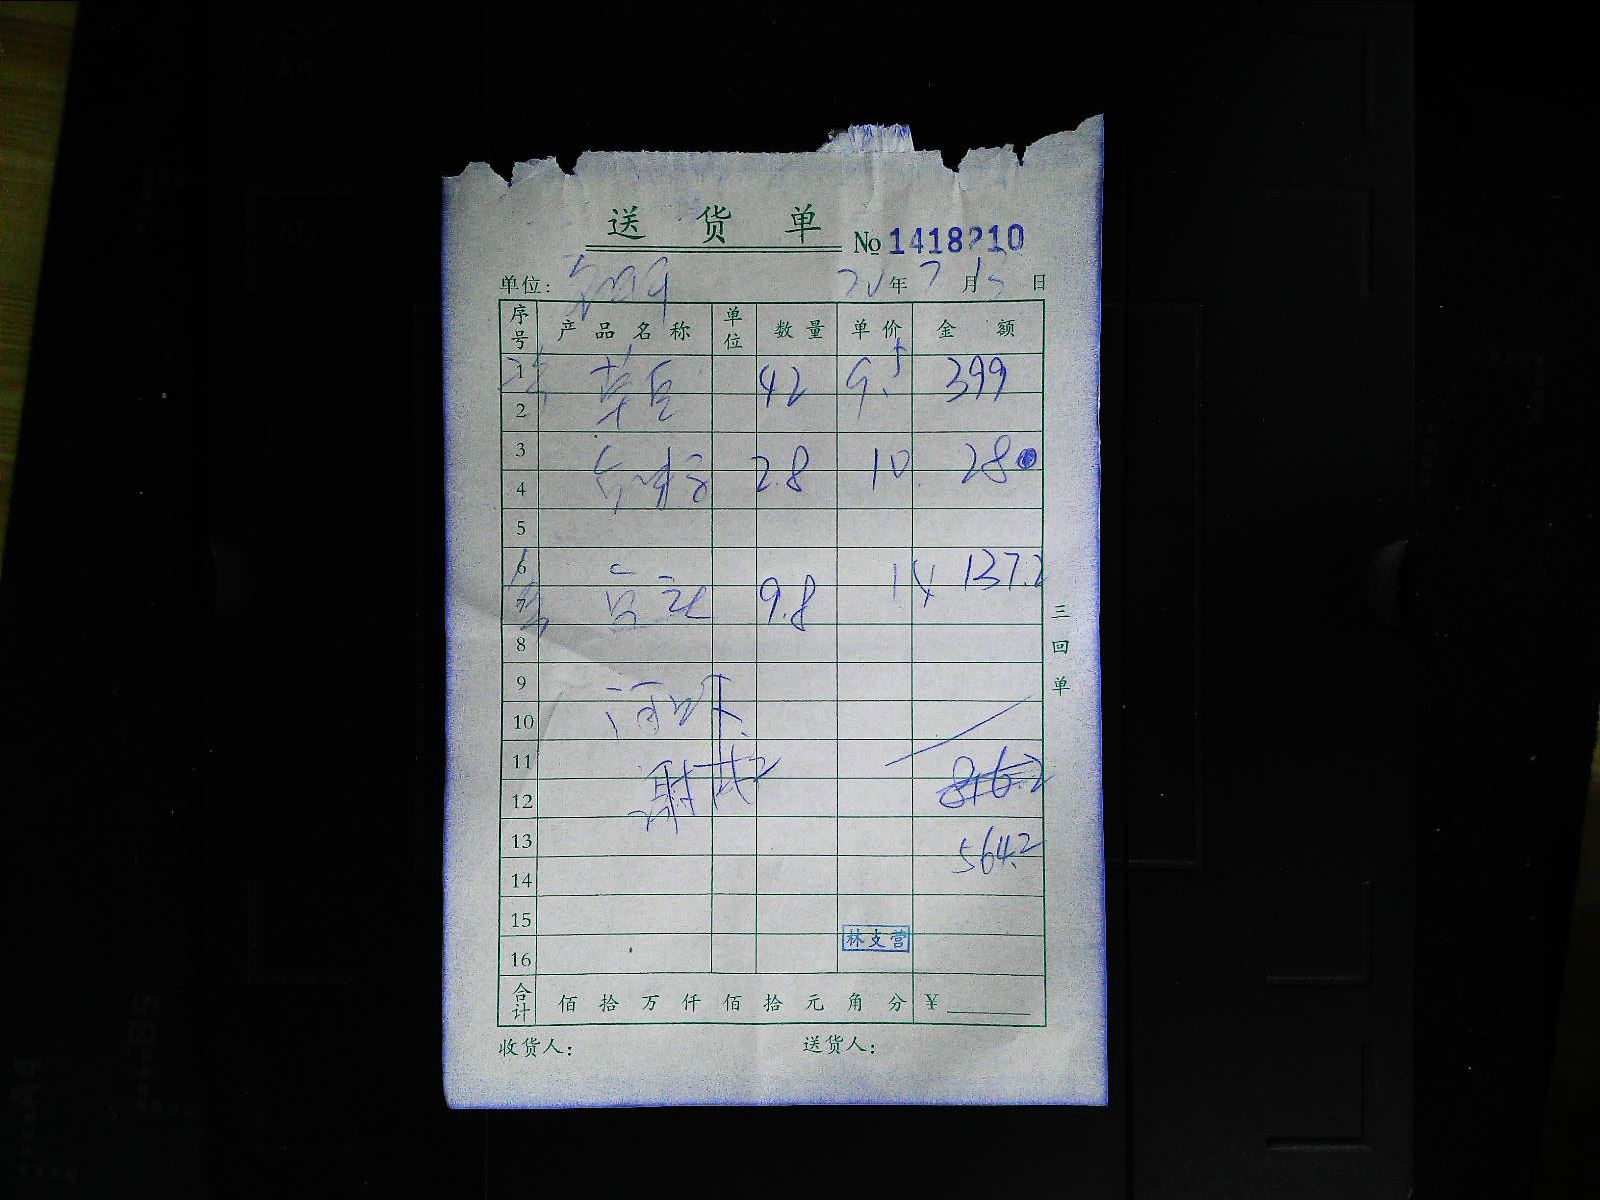 送 货 单
No 1418210
单位: 年 7 月 日
序号 产品名称 单位 数量 单价 金额
1 42 9.5 399
2
3
4 2.8 10 28
5
6
7 9.8 14 137.2
8
9
10
11
12 816.2
13 564.2
14
15
林支营
16
合计 佰 拾 万 仟 佰 拾 元 角 分 ¥
收货人: 送货人:
三回单